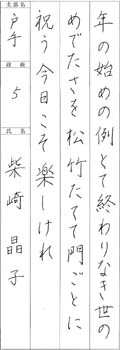 年の始めの例とて終わりなき世の
めでたさを松竹たてて門ごとに
祝う今日こそ楽しけれ
支部名
戸手
段級
5
氏名
柴崎晶子